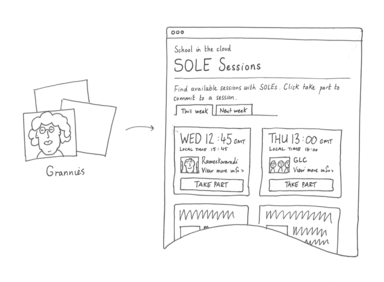 School in the cloud
SOLE Sessions
Find available sessions with SOLEs. Click take part to
commit to a session.
This week
Next week
WED 12:45 GMT
LOCAL TIME 15:45
View more info >
TAKE PART
THU 13:00 GMT
GLC
View more info >
TAKE PART
Grannies